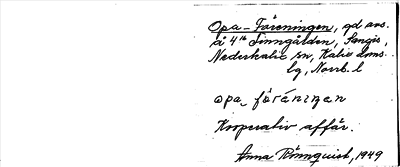 Opa-Föreningen, gd avs.
å 4 16 Finngården, Sangis,
Nederkalix sn, Kalix doms.
lg, Norrb. l
opa_föréningen
Kooperativ affär.
Anna Rönnquist, 1949